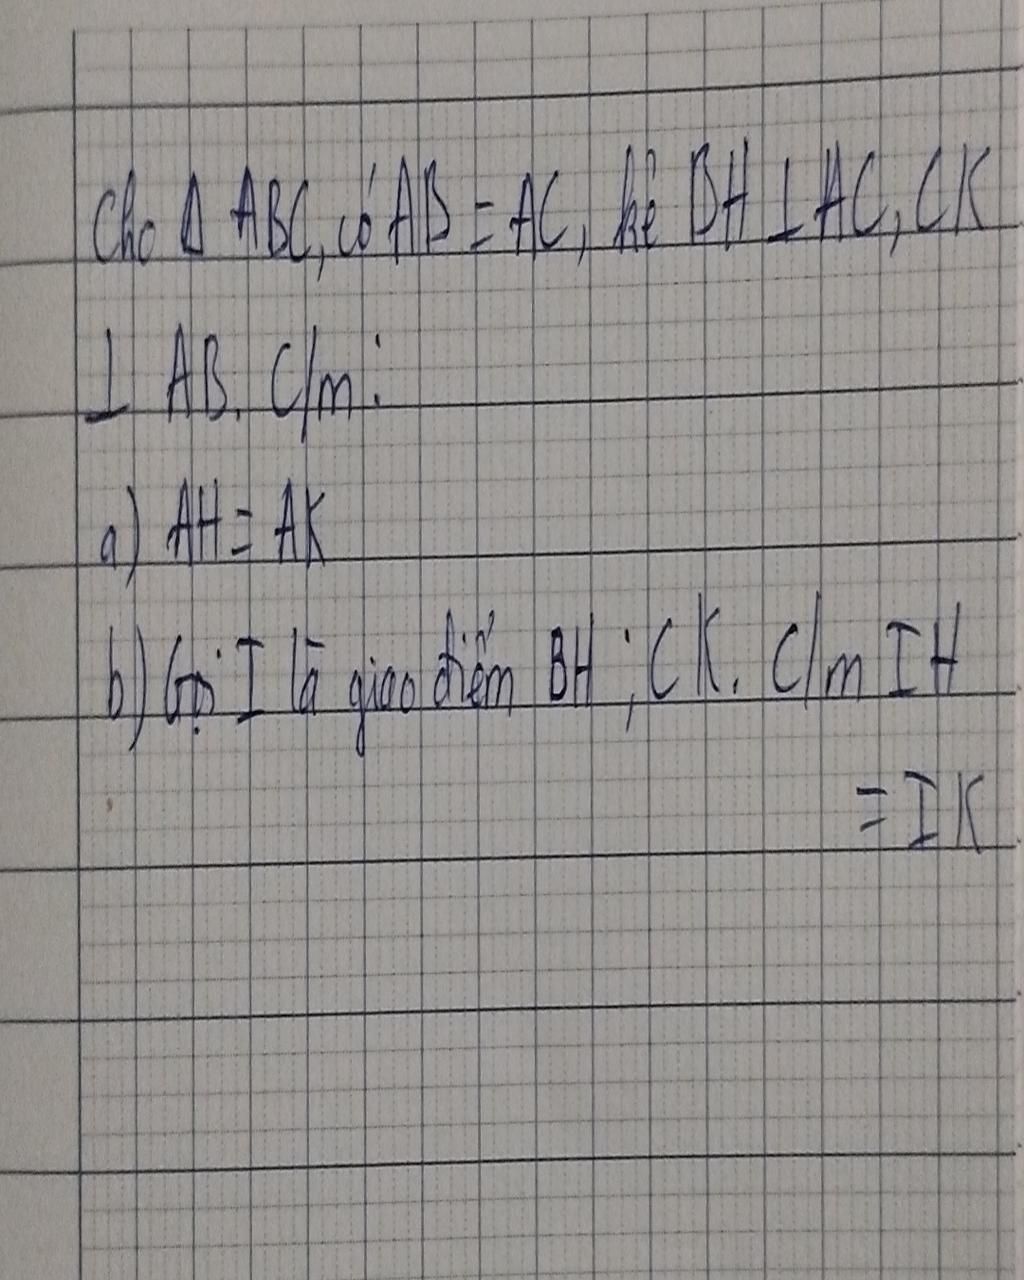 Cho Δ ABC, có AB = AC, kẻ BH ⊥ AC, CK
⊥ AB. C/m:
a) AH = AK
b) Gọi I là giao điểm BH ; CK. C/m IH
= IK